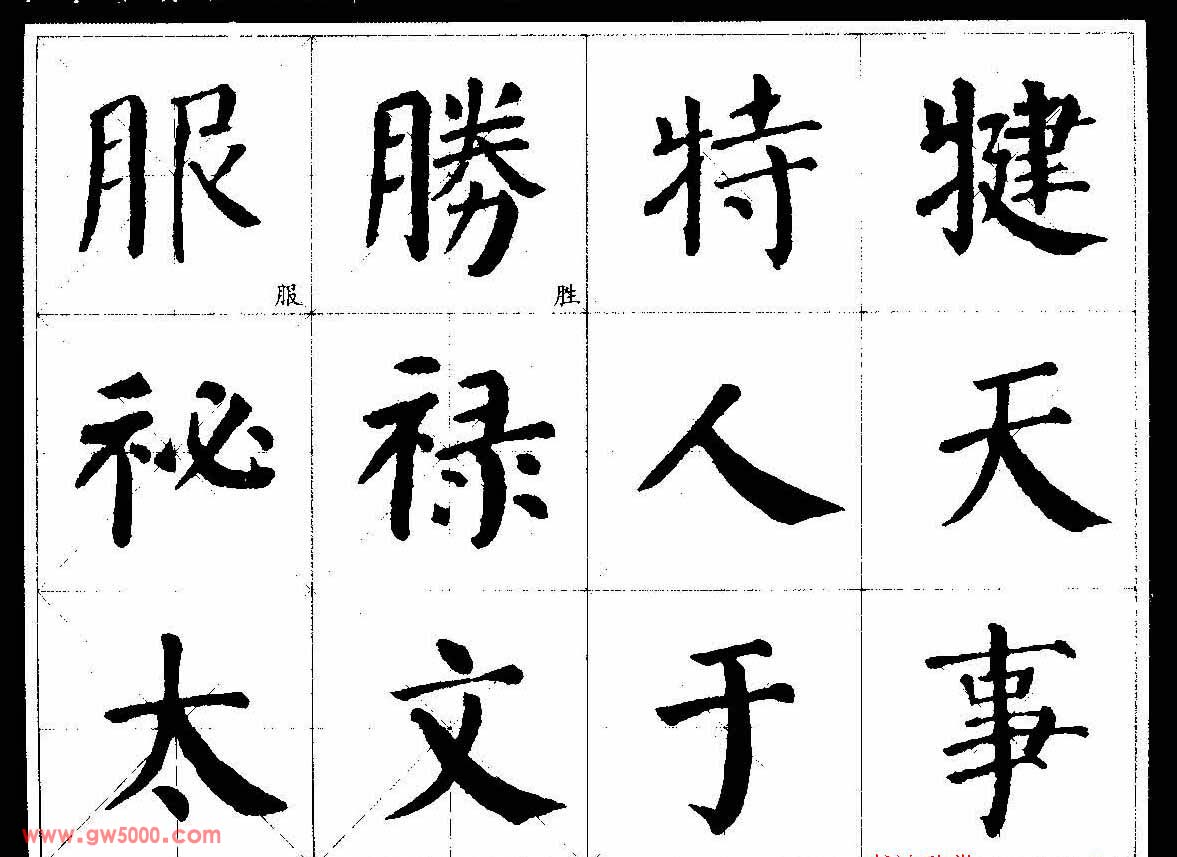 服 勝 特 犍
服 胜
祕 禄 人 天
太 文 于 事
www.gw5000.com